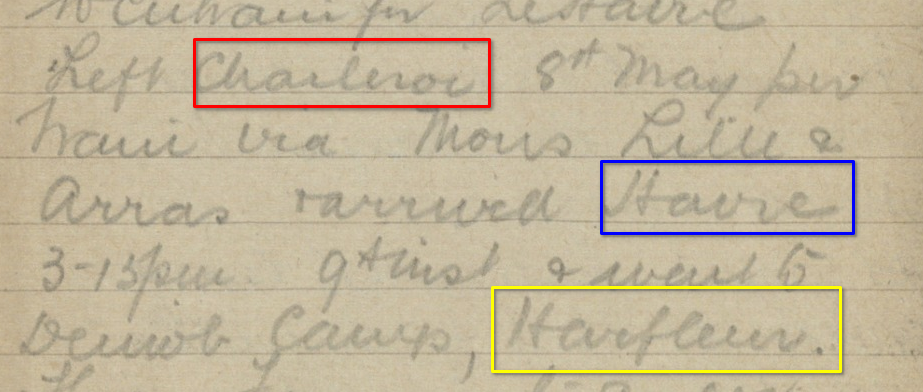 to entrain for Le Havre
Left Charleroi 8th May per
train via Mons Lille &
Arras & arrived Havre
3-15pm 9th inst & went to
Demob Camp, Harfleur.